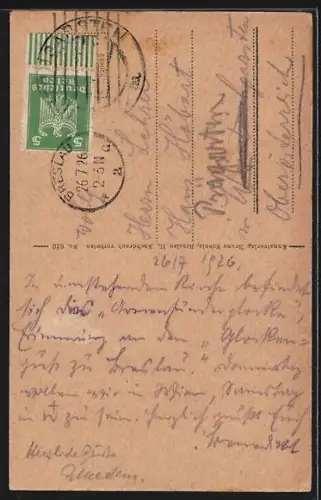 PRÄGARTEN
Deutsches
Reich
5 5
BRESLAU
26.7.26
2-3 N
a
Herrn Lehrer
Hans
Prägarten
Oberösterreich
Kunstverlag Bruno Scholz, Breslau II. Nachdruck verboten. No. 620
26/7 1926.
In umstehender Kirche befindet
sich die „Armensünderglocke",
Erinnerung an den „Glocken-
guß zu Breslau". Donnerstag
wollen wir in Wien, Samstag
in zu sein. Herzlich grüßt Euch
Herzliche Grüße